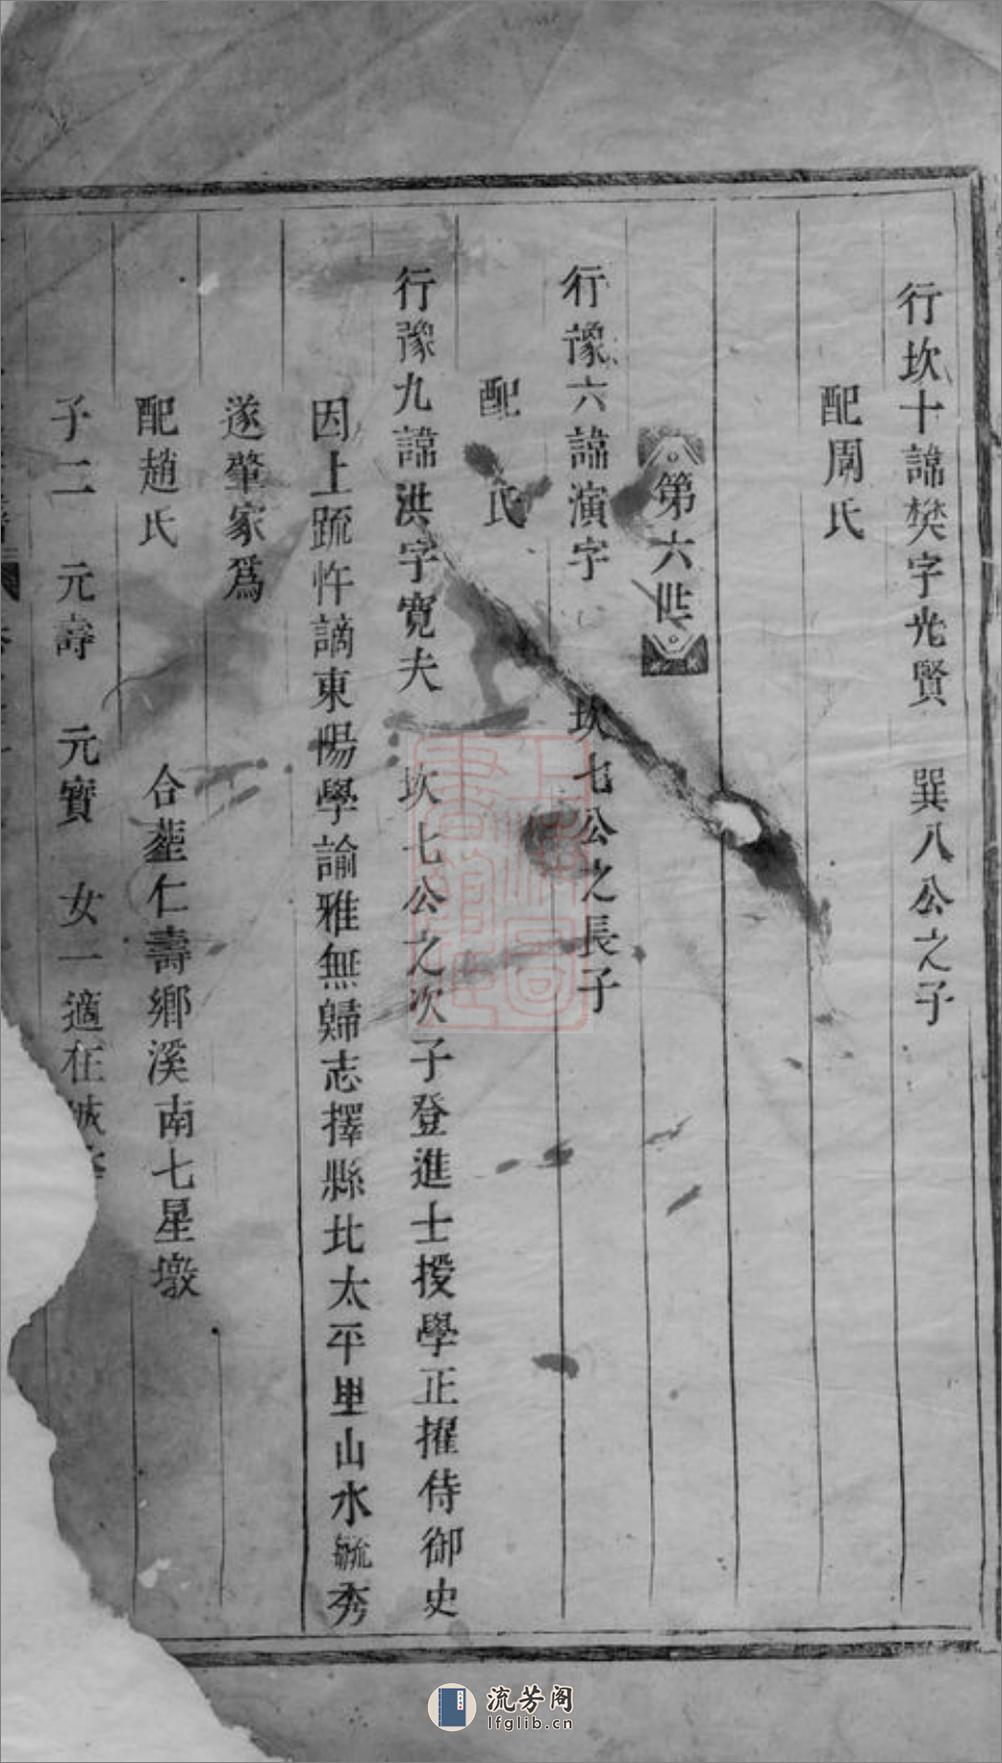 行坎十諱樊字光賢　巽八公之子
配周氏
第六世
行豫六諱演字　坎七公之長子
配　氏
行豫九諱洪字寬夫　坎七公之次子登進士授學正擢侍御史
因上䟽忤謫東陽學諭雅無歸志擇縣北太平里山水毓秀
遂肇家爲
配趙氏　合塟仁壽鄉溪南七星墩
子二　元壽　元寶　女一適在城
流芳阁
lfglib.cn